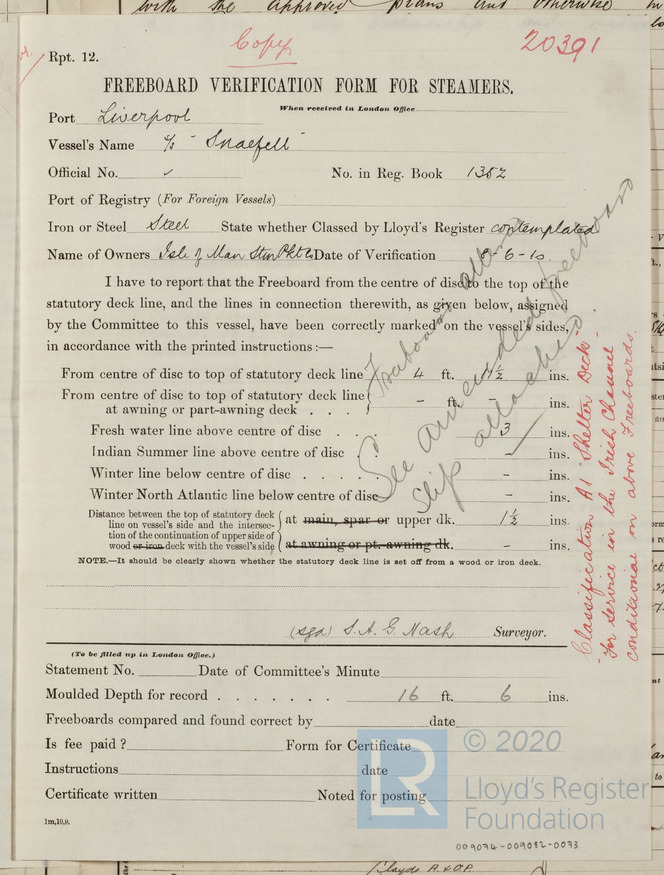 with the approved plans and otherwise
Copy
20391
Rpt. 12.
FREEBOARD VERIFICATION FORM FOR STEAMERS.
When received in London Office
Port Liverpool
Vessel's Name s/s "Snaefell"
Official No. ✓ No. in Reg. Book 1352
Port of Registry (For Foreign Vessels)
Iron or Steel Steel State whether Classed by Lloyd's Register contemplated
Name of Owners Isle of Man Stm Pkt Co Date of Verification 8-6-10.
I have to report that the Freeboard from the centre of disc to the top of the
statutory deck line, and the lines in connection therewith, as given below, assigned
by the Committee to this vessel, have been correctly marked on the vessel's sides,
in accordance with the printed instructions:—
From centre of disc to top of statutory deck line 4 ft. ½ ins.
From centre of disc to top of statutory deck line
at awning or part-awning deck . . . - ft. - ins.
Fresh water line above centre of disc . . 3 ins.
Indian Summer line above centre of disc . - ins.
Winter line below centre of disc . . . . . - ins.
Winter North Atlantic line below centre of disc - ins.
Distance between the top of statutory deck
line on vessel's side and the intersec-
tion of the continuation of upper side of
wood or iron deck with the vessel's side
at main, spar or upper dk. 1½ ins.
at awning or pt. awning dk. - ins.
NOTE.—It should be clearly shown whether the statutory deck line is set off from a wood or iron deck.
(sgd) S. A. G. Nash Surveyor.
Freeboard
See amended freeboard
slip attached
Classification A1 "Shelter Deck"
"For service in the Irish Channel
conditional on above Freeboards.
(To be filled up in London Office.)
Statement No. Date of Committee's Minute
Moulded Depth for record . . . . . . . 16 ft. 6 ins.
Freeboards compared and found correct by date
Is fee paid ? Form for Certificate
Instructions date
Certificate written Noted for posting
1m,10,9.
LR
© 2020
Lloyd's Register
Foundation
009074-009082-0073
Lloyds R. & O.P.